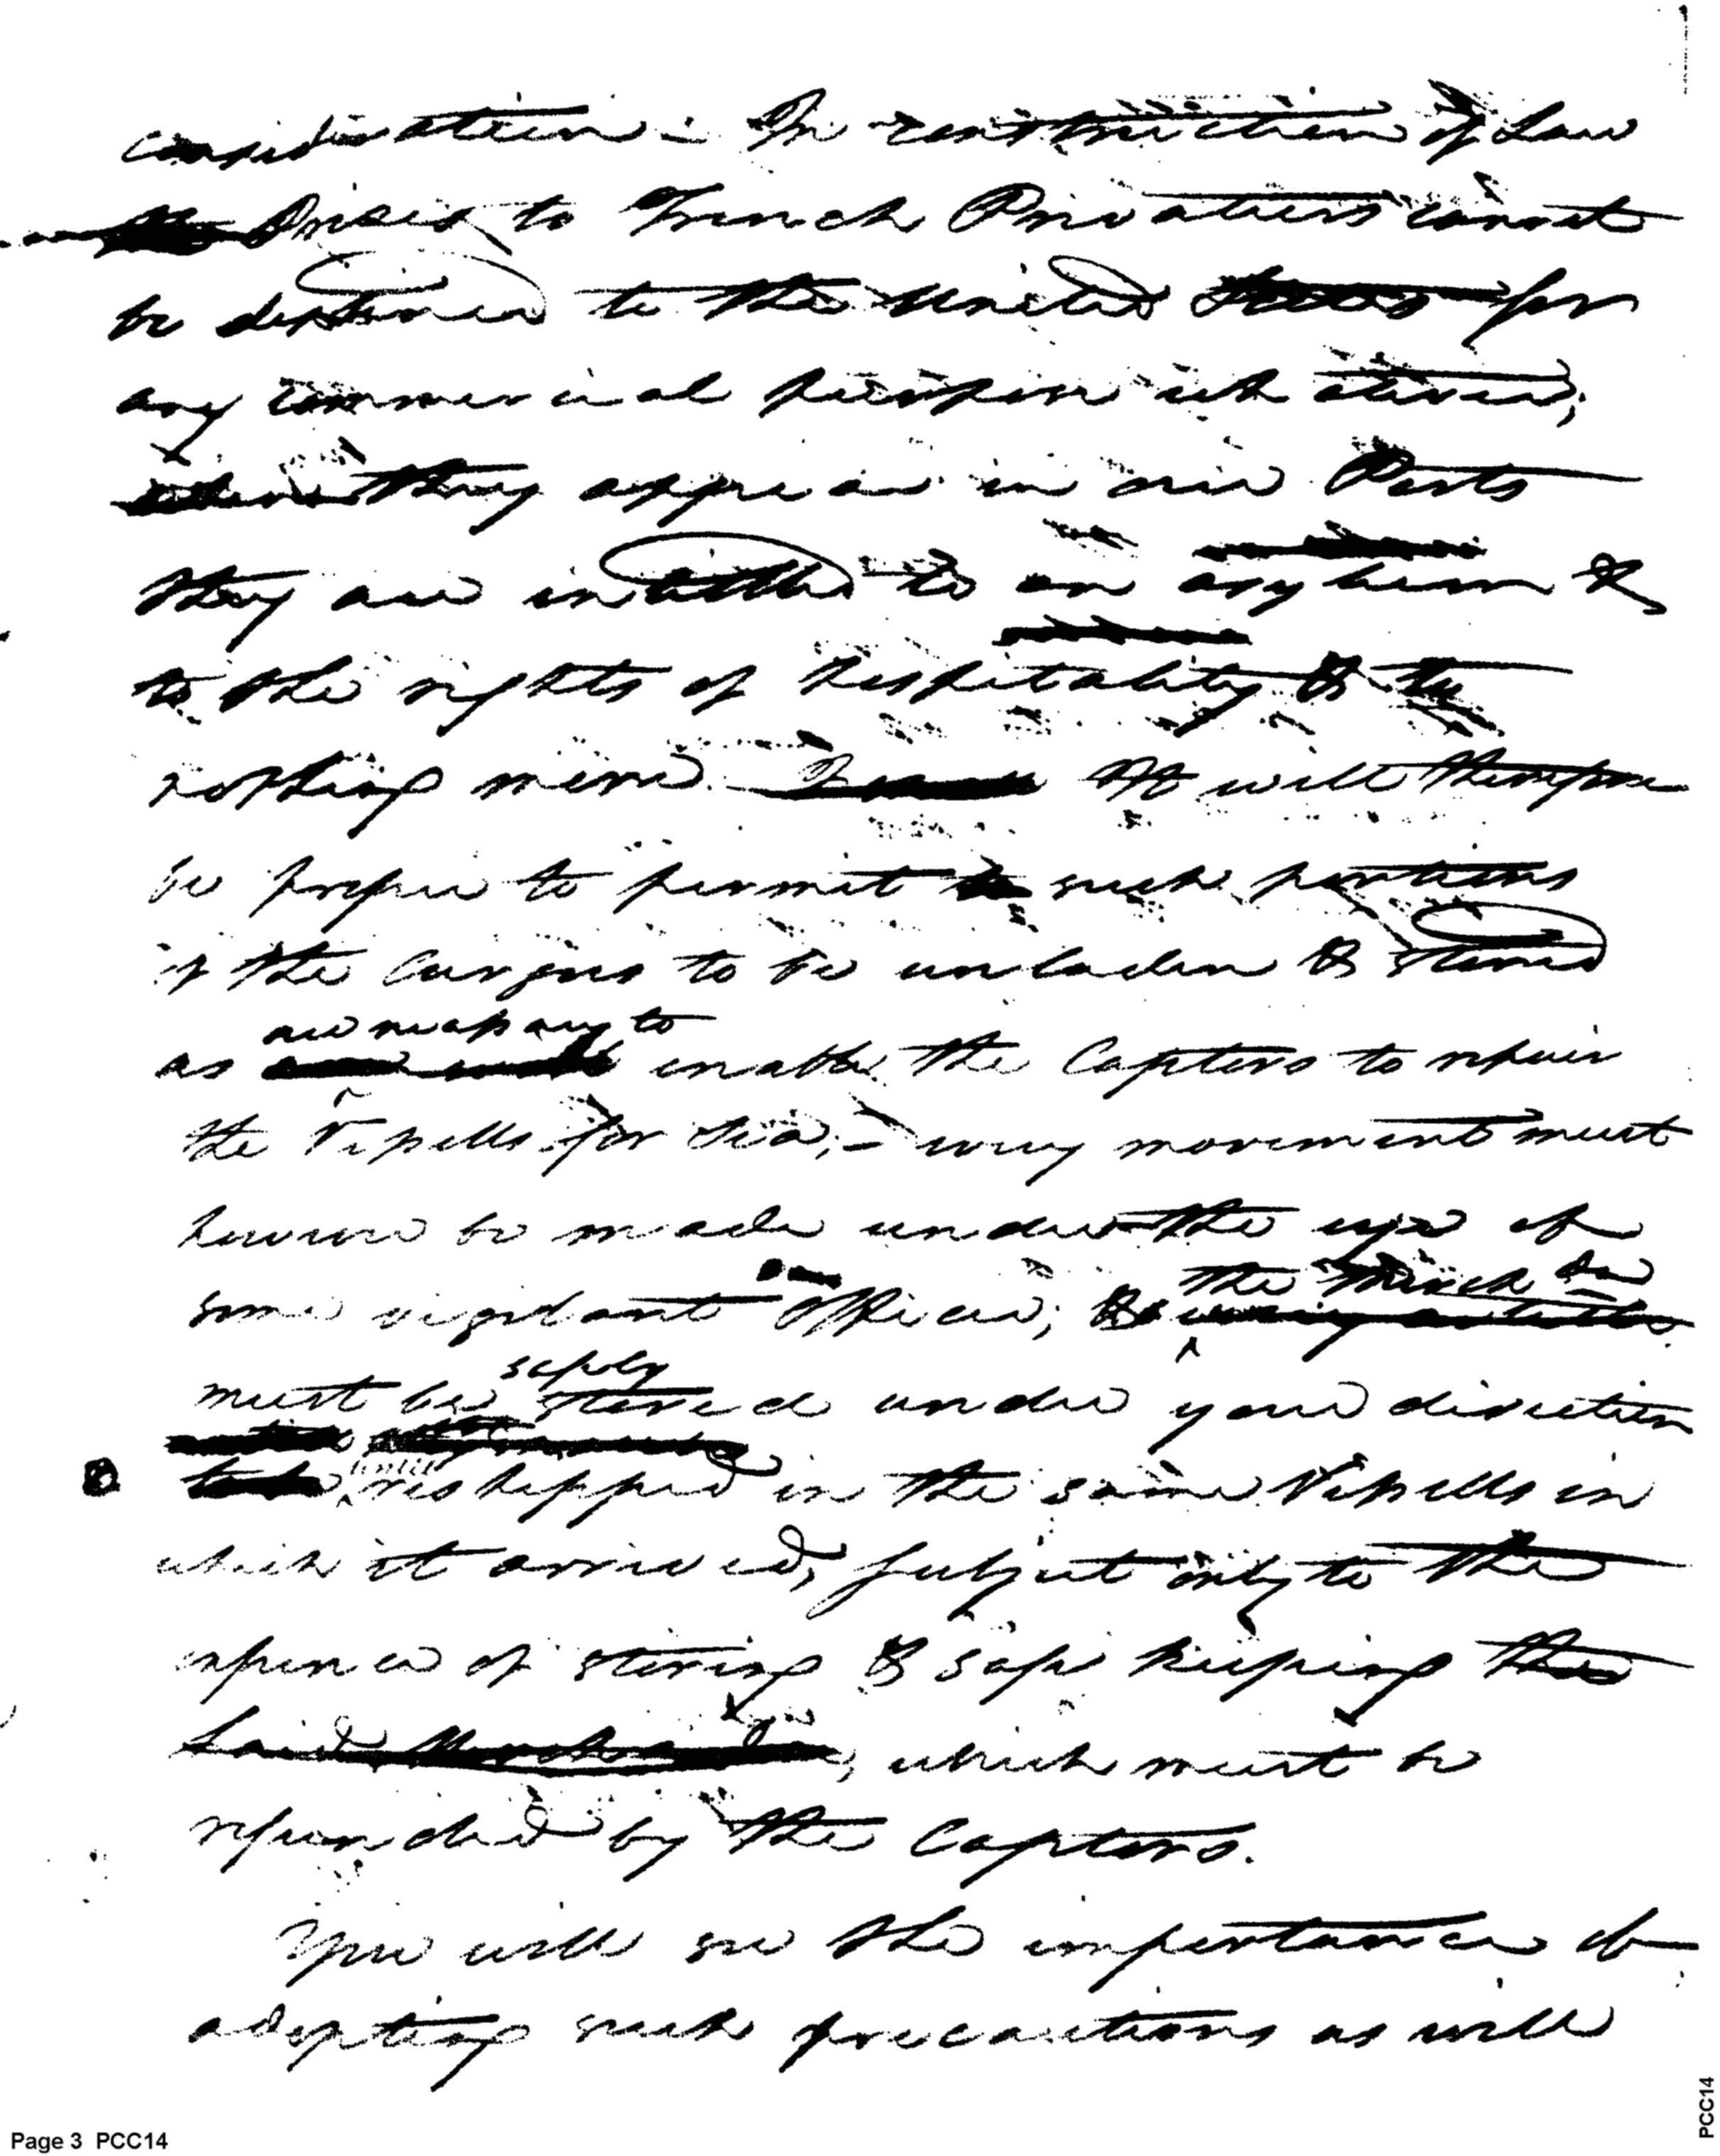 consideration – In construction of Law
Prizes to French Privateers cannot
be destined to the United States for
any commercial purpose whatever;
when they appear in our Ports
they are intitled to an asylum &
to the rights of hospitality & to
nothing more. It will therefore
be proper to permit such portions
of the Cargoes to be unladen & stored
are necessary to
as enable the Captors to repair
the Vessells for Sea; – every movement must
however be made under the eye of
some vigilant Officer; & the Merch dze
must be safely stored under your direction
until reshipped in the same Vessells in
which it arrived, subject only to the
expence of storing & safe keeping the
said Merchandize, which must be
refunded by the Captors.
You will see the importance of
adopting such precautions as will
Page 3 PCC14
PCC14